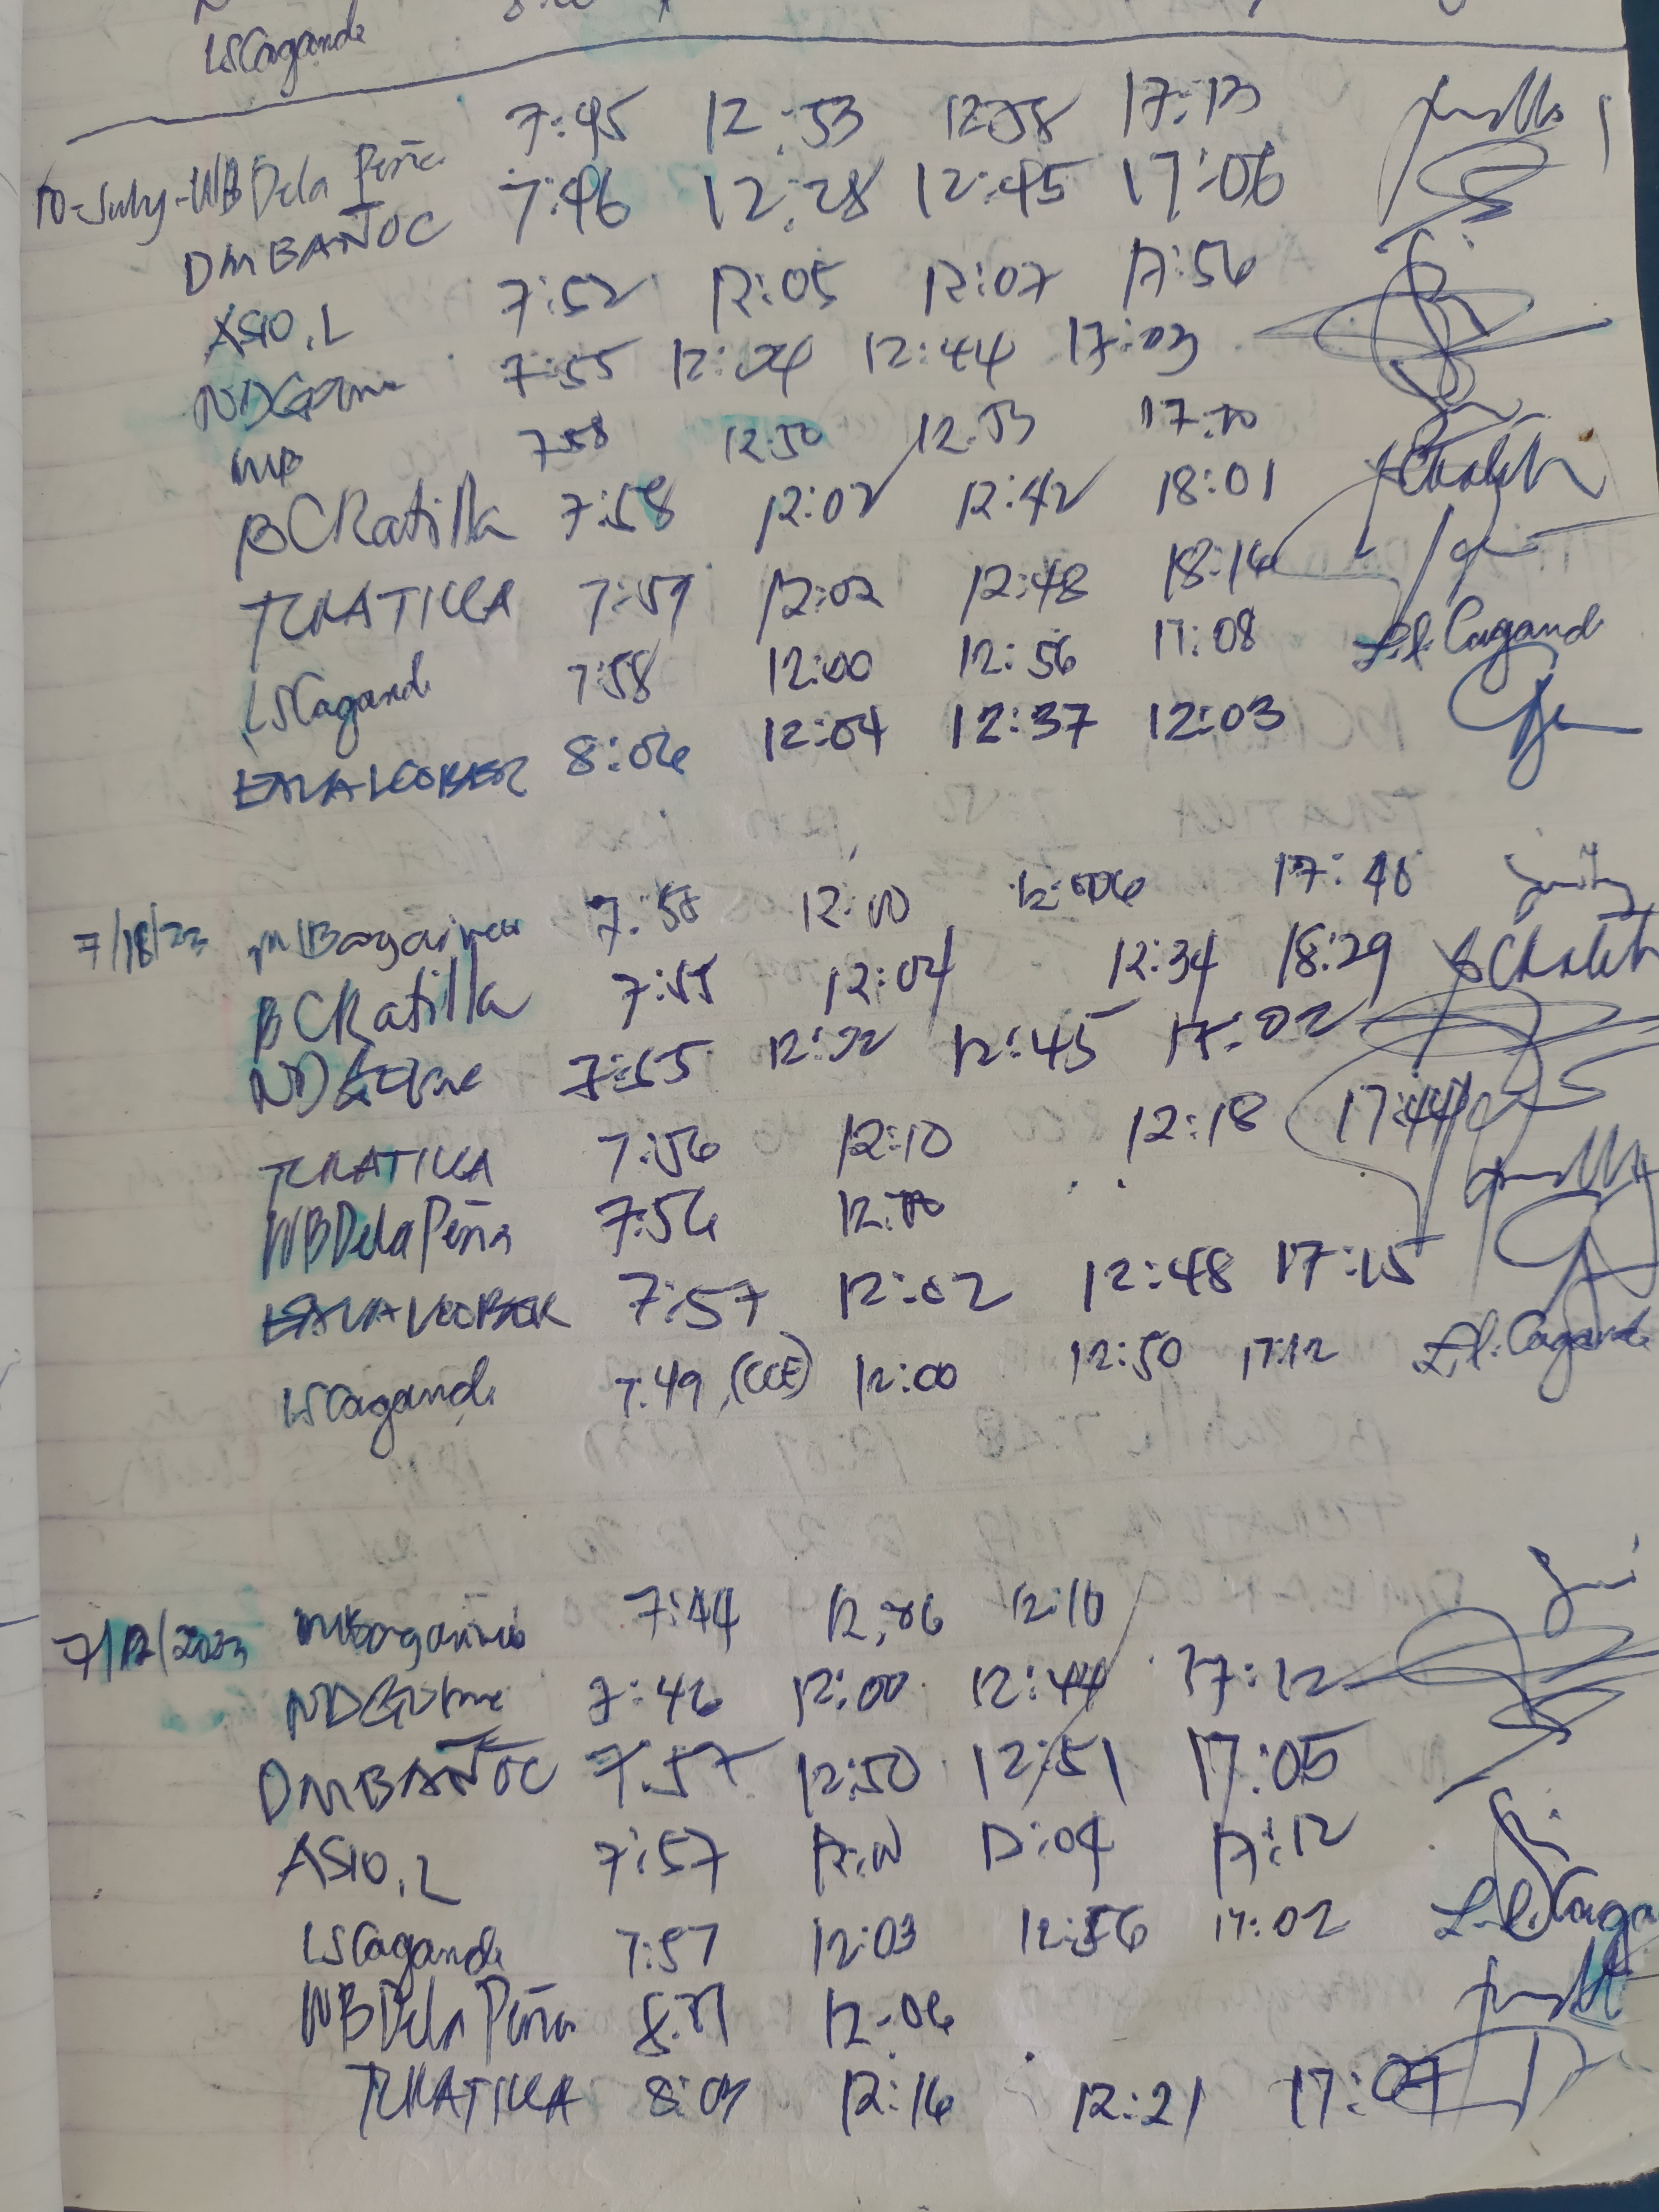 LSCagande
10-July-WB Dela Peña 7:45 12:53 12:58 17:13
DMBAÑOC 7:46 12:28 12:45 17:06
ASIO.L 7:52 12:05 12:07 17:56
7:55 12:04 12:44 17:03
7:58 12:50 12:53
BCRatilla 7:58 12:02 12:42 18:01
TCRATILLA 7:59 12:02 12:48 18:16
LSCagande 7:58 12:00 12:56 17:08 L.S. Cagande
8:06 12:04 12:37 12:03
7/18/23 7:58 12:00 12:06 17:40
BCRatilla 7:55 12:04 12:34 18:29
7:55 12:02 12:45 17:02
TCRATILLA 7:56 12:10 12:18 17:44
WBDelaPeña 7:56
7:57 12:02 12:48 17:15
LSCagande 7:49 (CCE) 12:00 12:50 17:12 L.S. Cagande
7/12/2023 7:44 12:06 12:10
7:46 12:00 12:44 17:12
DMBAÑOC 7:57 12:50 12:51 17:05
ASIO.L 7:57 12:04 17:12
LSCagande 7:57 12:03 12:56 17:02 L.S. Caga
WBDela Peña 12:06
TCRATILLA 8:03 12:16 12:21 17:07